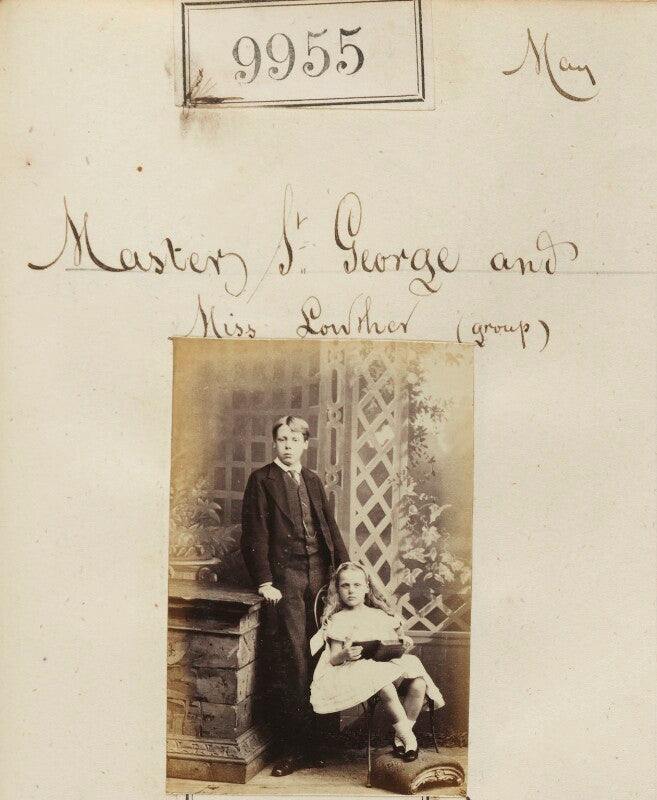 9955
May
Master St. George and
Miss Lowther (group)